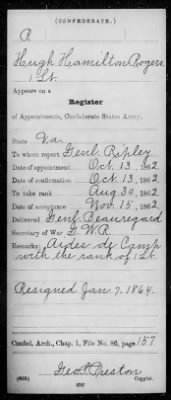 (CONFEDERATE.)
A
Hugh Hamilton Rogers
1 Lt.
Appears on a
Register
of Appointments, Confederate States Army.
State Va.
To whom report Genl Ripley
Date of appointment Oct 13, 1862
Date of confirmation Oct 13, 1862
To take rank Aug. 30, 1862
Date of acceptance Nov. 15, 1862
Delivered Genl. Beauregard
Secretary of War G.W.R
Remarks: Aide de Camp
with the rank of 1 Lt.
Resigned Jan. 7. 1864.
Confed. Arch., Chap. 1, File No. 86, page 157
Preston
Copyist.